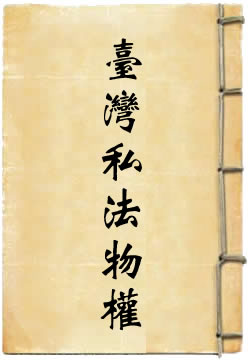 臺灣私法物權